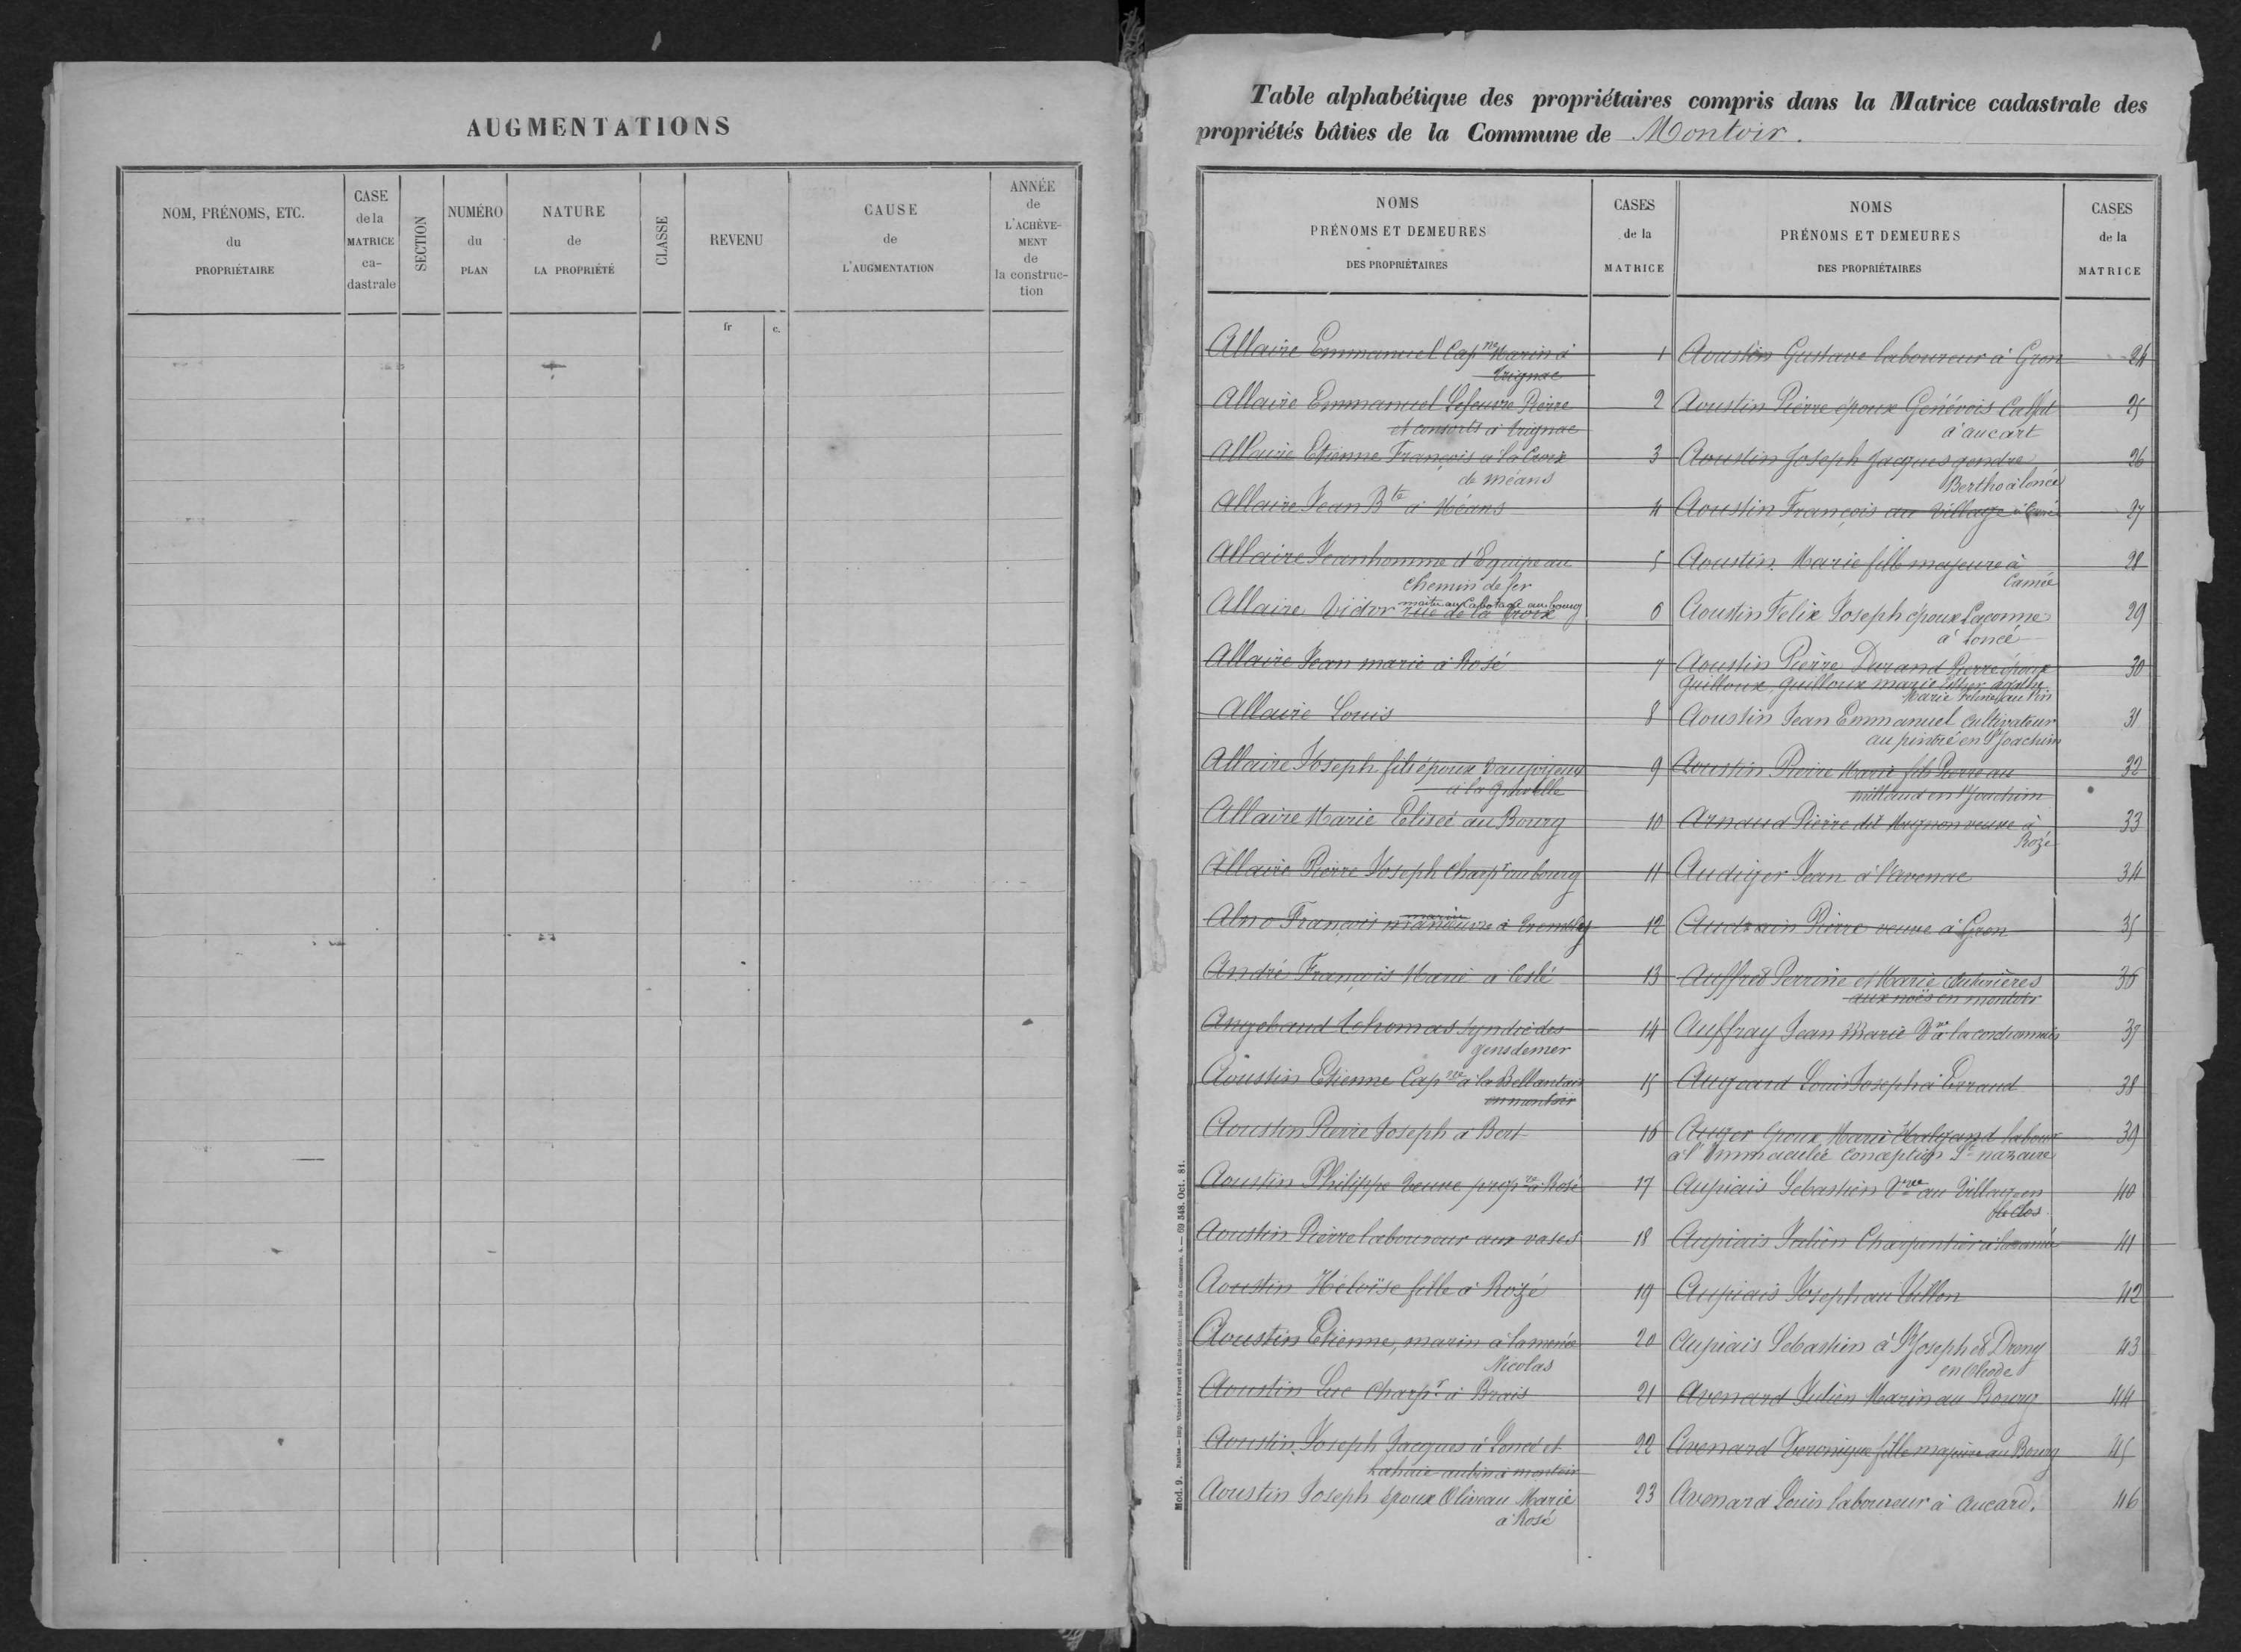 AUGMENTATIONS
NOM, PRÉNOMS, ETC.
du
PROPRIÉTAIRE
CASE
de la
MATRICE
ca-
dastrale
SECTION
NUMÉRO
du
PLAN
NATURE
de
LA PROPRIÉTÉ
CLASSE
REVENU
fr c.
CAUSE
de
L'AUGMENTATION
ANNÉE
de
L'ACHÈVE-
MENT
de
la construc-
tion
Table alphabétique des propriétaires compris dans la Matrice cadastrale des
propriétés bâties de la Commune de Montoir.
NOMS
PRÉNOMS ET DEMEURES
DES PROPRIÉTAIRES
CASES
de la
MATRICE
Allaire Emmanuel Cap ne Marin à 1
Trignac
Allaire Emmanuel Lefeuvre Pierre 2
et consorts à Trignac
Allaire Etienne François à la Croix 3
de méans
Allaire Jean Bte à Méans 4
Allaire Jean homme d'Equipe au 5
chemin de fer
maître au Cabotage au bourg
Allaire Victor rue de la Croix 6
Allaire Jean marie à Rosé 7
Allaire Louis 8
Allaire Joseph fils époux 9
à la
Allaire Marie Elisée au Bourg 10
Allaire Pierre Joseph Charpr au bourg 11
marin
Alno François manœuvre à 12
André François Marie à 13
Angebaud Thomas syndic des 14
gens de mer
Aoustin Etienne Capne à la Bellantais 15
en montoir
Aoustin Pierre Joseph à Bert 16
Aoustin Philippe veuve propre à Rosé 17
Aoustin Pierre laboureur aux vases 18
Aoustin Héloïse fille à Rozé 19
Aoustin Etienne, marin à 20
Nicolas
Aoustin Luc Charpr à Brais 21
Aoustin Joseph Jacques à Loncé et 22
Lahaie aubin à montoir
Aoustin Joseph époux Oliveau Marie 23
à Rosé
NOMS
PRÉNOMS ET DEMEURES
DES PROPRIÉTAIRES
CASES
de la
MATRICE
Aoustin Gustave laboureur à Gron 24
Aoustin Pierre époux Genévois 25
à aucart
Aoustin Joseph Jacques gendre 26
Bertho à loncé
Aoustin François au Village 27
Aoustin Marie fille majeure à 28
Camée
Aoustin Felix Joseph époux Laconne 29
à Loncé
Aoustin Pierre Durand Pierre époux 30
Guilloux, guilloux marie
Marie au Pin
Aoustin Jean Emmanuel Cultivateur 31
au pintré en St Joachim
Aoustin Pierre Marie fils Pierre au 32
en St Joachim
Arnaud Pierre dit Mignon veuve à 33
Rozé
Audiger Jean à l'avenac 34
Audrain Pierre veuve à Gron 35
Auffred Perrine et Marie Couturières 36
aux noës en montoir
Auffray Jean Marie Vve à la cordonnais 37
Augeard Louis Joseph à Erraud 38
Auger époux Marie Halgand labour 39
à l'Immaculée conception St nazaire
Aupiais Sebastien Vve au Village en 40
le clos
Aupiais Julien Charpentier à 41
Aupiais Joseph au Tillon 42
Aupiais Sebastien à St Joseph et Dreny 43
en
Avenard Julien Marin au Bourg 44
Avenard Veronique fille majeure au Bourg 45
Avenard Louis laboureur à aucard. 46